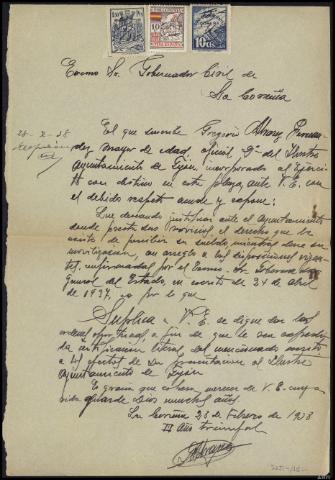 10 cts
10
Excmo Sr. Gobernador Civil de
La Coruña
28-2-38
El que suscribe Gregorio Alvarez
mayor de edad, oficial 3º del Iltre
Ayuntamiento de Gijón, incorporado al Ejérci-
to con destino en esta plaza, ante V.E. con
el debido respeto acude y expone:
Que deseando justificar ante el Ayuntamiento
donde presta sus servicios el derecho que le
asiste de percibir su sueldo mientras dure su
movilización, con arreglo a las disposiciones vigen-
tes, del Excmo. Sr. Gobernador
General del Estado, en escrito de 24 de abril
de 1937, es por lo que
Suplica a V.E. se digne dar las
ordenes a fin de que le sea
la certificación literal del mencionado escrito
a los efectos de su presentación al Ilustre
Ayuntamiento de Gijón.
Es gracia que espera merecer de V.E. cuya
vida guarde Dios muchos años.
La Coruña 28 de Febrero de 1938
II Año triunfal